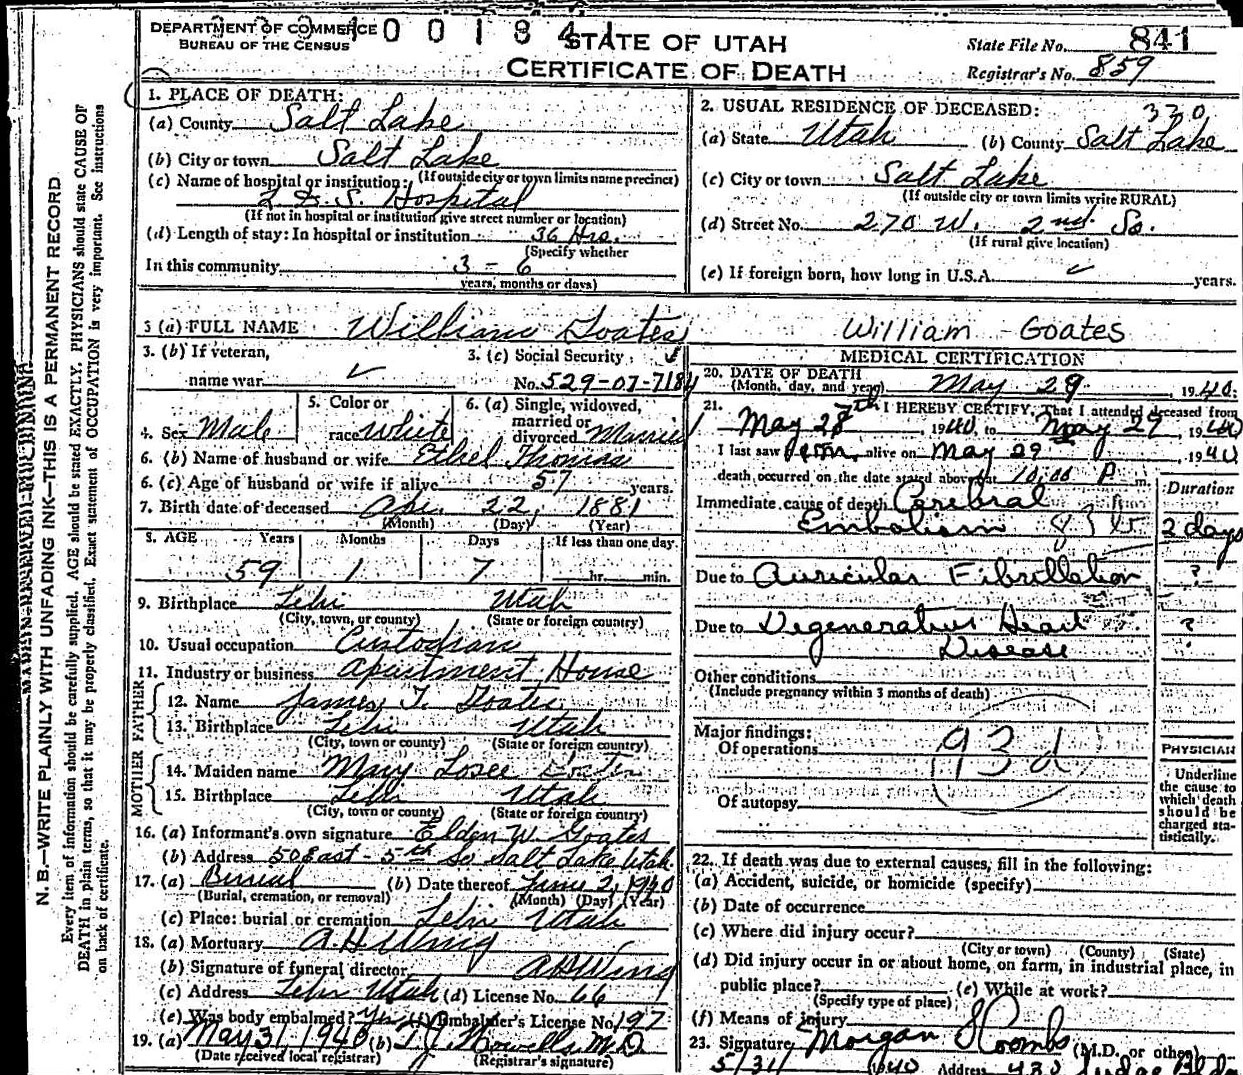 DEPARTMENT OF COMMERCE
BUREAU OF THE CENSUS
1001841
STATE OF UTAH
CERTIFICATE OF DEATH
State File No. 841
Registrar's No. 859
1. PLACE OF DEATH:
(a) County Salt Lake
(b) City or town Salt Lake
(If outside city or town limits name precinct)
(c) Name of hospital or institution:
L. D. S. Hospital
(If not in hospital or institution give street number or location)
(d) Length of stay: In hospital or institution 36 Hrs.
(Specify whether
In this community 3 - 6
years, months or days)
2. USUAL RESIDENCE OF DECEASED:
330
(a) State Utah (b) County Salt Lake
(c) City or town Salt Lake
(If outside city or town limits write RURAL)
(d) Street No. 270 W. 2nd So.
(If rural give location)
(e) If foreign born, how long in U.S.A. years.
3 (a) FULL NAME William Goates William Goates
3. (b) If veteran,
name war
3. (c) Social Security
No. 529-07-7184
4. Sex Male
5. Color or
race White
6. (a) Single, widowed,
married or
divorced Married
6. (b) Name of husband or wife Ethel Thomas
6. (c) Age of husband or wife if alive 57 years.
7. Birth date of deceased Apr. 22, 1881
(Month) (Day) (Year)
8. AGE Years Months Days If less than one day
59 1 7 hr. min.
9. Birthplace Lehi Utah
(City, town, or county) (State or foreign country)
10. Usual occupation Custodian
11. Industry or business Apartment House
FATHER
12. Name James T. Goates
13. Birthplace Lehi Utah
(City, town or county) (State or foreign country)
MOTHER
14. Maiden name Mary Losee Goates
15. Birthplace Lehi Utah
(City, town or county) (State or foreign country)
16. (a) Informant's own signature Elden W. Goates
(b) Address 50 East - 5th So Salt Lake Utah.
17. (a) Burial (b) Date thereof June 2, 1940
(Burial, cremation, or removal) (Month) (Day) (Year)
(c) Place: burial or cremation Lehi Utah
18. (a) Mortuary A. H. Wing
(b) Signature of funeral director A H Wing
(c) Address Lehi Utah (d) License No. 66
(e) Was body embalmed? Yes (f) Embalmer's License No. 197
19. (a) May 31, 1940 (b) T J Howells M.D.
(Date received local registrar) (Registrar's signature)
MEDICAL CERTIFICATION
20. DATE OF DEATH
(Month, day, and year) May 29, 1940.
21. I HEREBY CERTIFY, That I attended deceased from
May 28th, 1940, to May 29, 1940
I last saw him alive on May 29, 1940
death occurred on the date stated above at 10:00 P m.
Duration
Immediate cause of death Cerebral
Embolism 2 days
Due to Auricular Fibrillation ?
Due to Degenerative Heart ?
Disease
Other conditions
(Include pregnancy within 3 months of death)
Major findings:
Of operations 93d
Of autopsy
PHYSICIAN
Underline
the cause to
which death
should be
charged sta-
tistically.
22. If death was due to external causes, fill in the following:
(a) Accident, suicide, or homicide (specify)
(b) Date of occurrence
(c) Where did injury occur?
(City or town) (County) (State)
(d) Did injury occur in or about home, on farm, in industrial place, in
public place? (e) While at work?
(Specify type of place)
(f) Means of injury
23. Signature Morgan S Coombs (M.D. or other)
5/31 1940 Address 430 Judge Bldg
N. B.—WRITE PLAINLY WITH UNFADING INK—THIS IS A PERMANENT RECORD
Every item of information should be carefully supplied. AGE should be stated EXACTLY. PHYSICIANS should state CAUSE OF
DEATH in plain terms, so that it may be properly classified. Exact statement of OCCUPATION is very important. See instructions
on back of certificate.